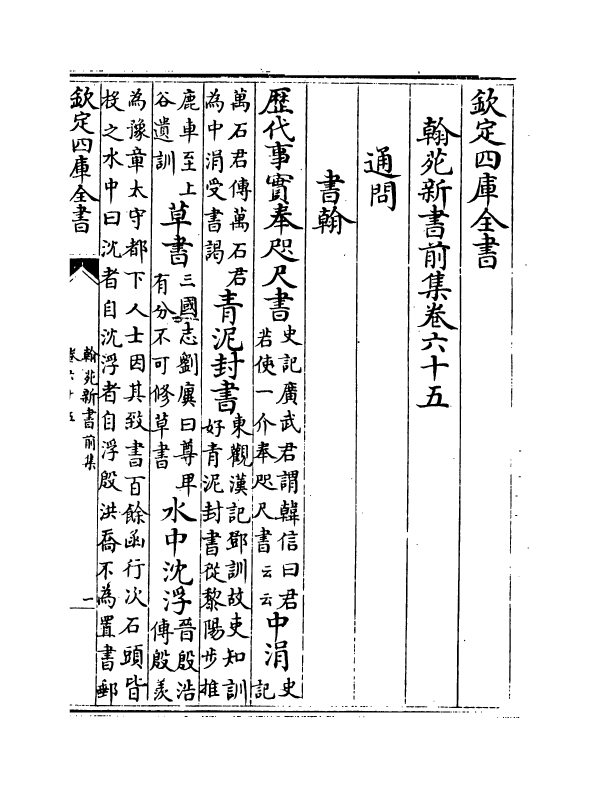 欽定四庫全書
翰苑新書前集卷六十五
通問
書翰
歷代事實奉咫尺書史記廣武君謂韓信曰君若使一介奉咫尺書云云中涓史記
萬石君傳萬石君為中涓受書謁青泥封書東觀漢記鄧訓故吏知訓好青泥封書從黎陽步推
鹿車至上谷遺訓草書三國志劉廙曰尊卑有分不可修草書水中沈浮晉殷浩傳殷羨
為豫章太守都下人士因其致書百餘函行次石頭皆
投之水中曰沈者自沈浮者自浮殷洪喬不為置書郵
欽定四庫全書
翰苑新書前集
卷六十五
一